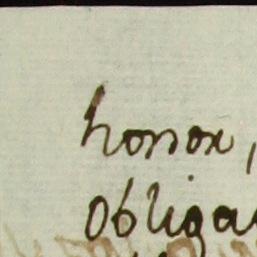 honor,
Obliga